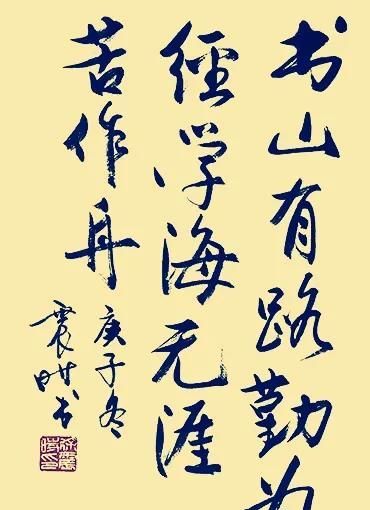 书山有路勤为
經学海无涯
苦作舟
庚子冬
震时书